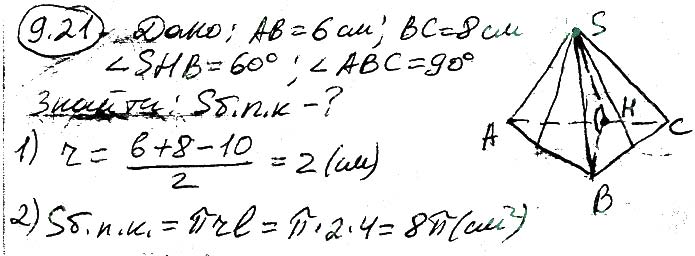 9.21. Дано: AB=6см; BC=8см
∠SHB=60°; ∠ABC=90°
Знайти: Sб.п.к -?
1) r = (6+8-10)/2 = 2 (см)
2) Sб.п.к. = πrl = π·2·4 = 8π (см²)
S
A
H
C
B